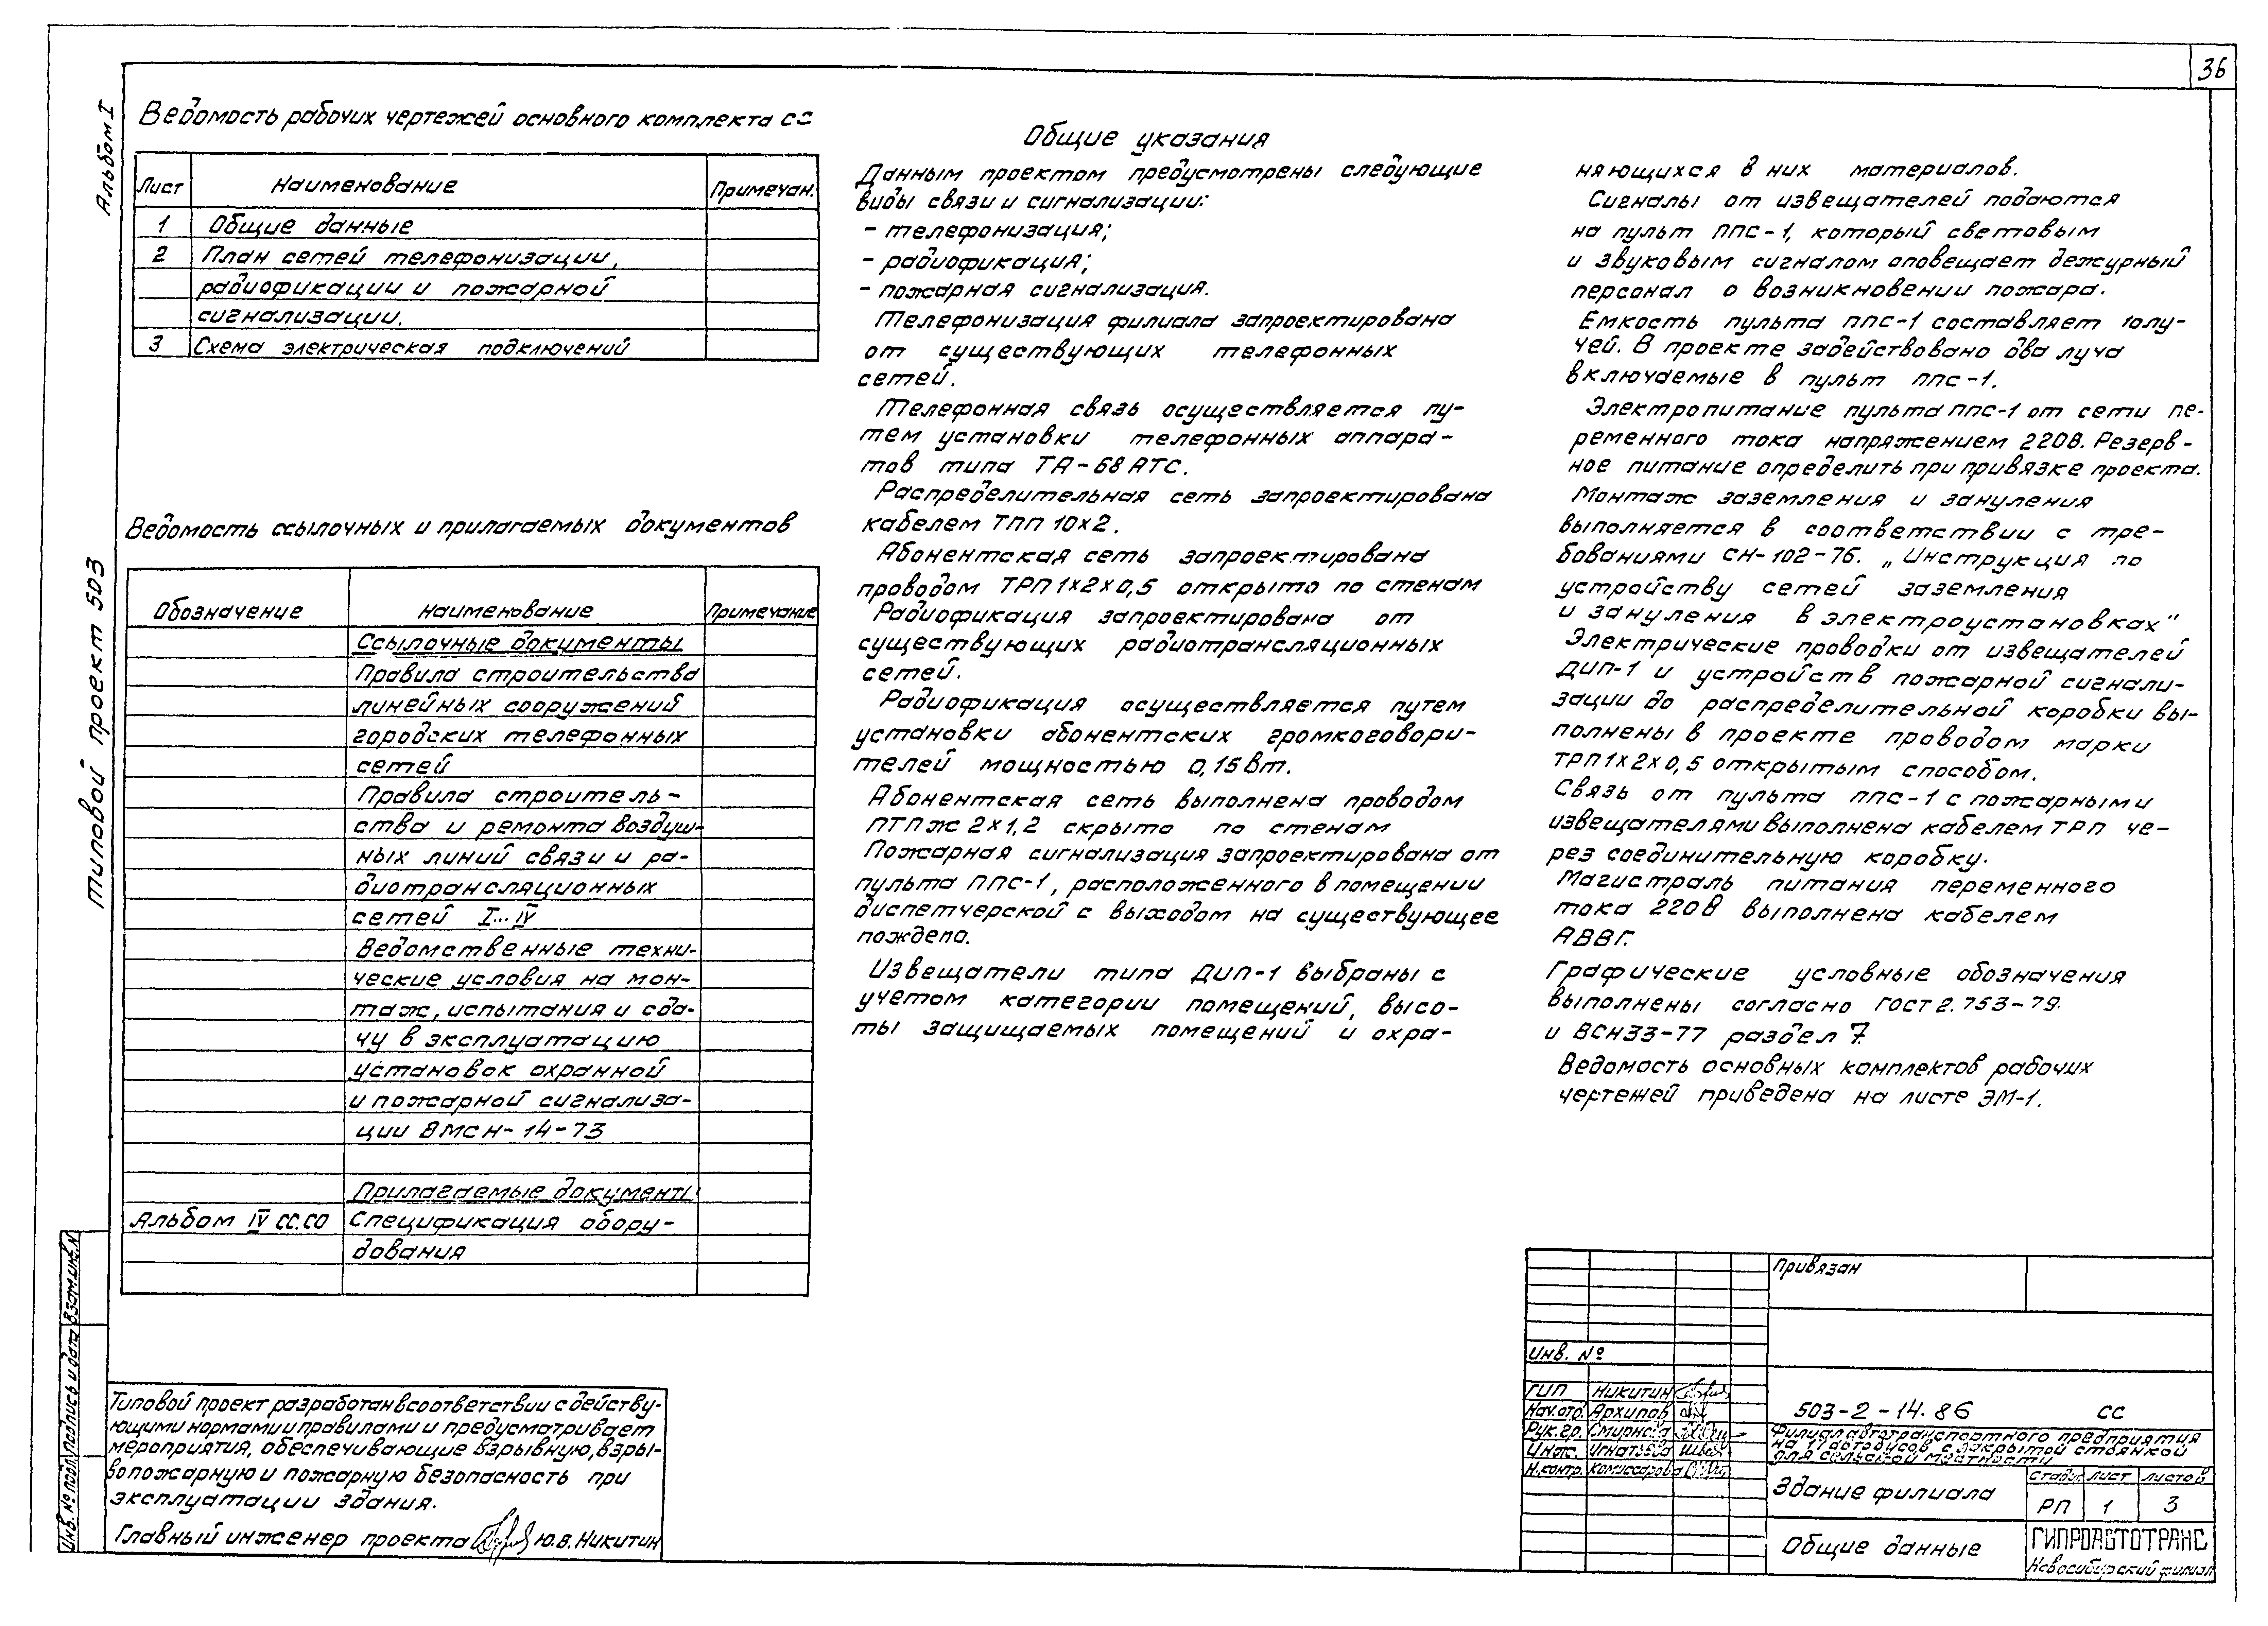 36
Альбом I
Типовой проект 503
Ведомость рабочих чертежей основного комплекта СС
Лист Наименование Примечан.
1 Общие данные
2 План сетей телефонизации,
радиофикации и пожарной
сигнализации.
3 Схема электрическая подключений
Ведомость ссылочных и прилагаемых документов
Обозначение Наименование Примечание
Ссылочные документы
Правила строительства
линейных сооружений
городских телефонных
сетей
Правила строитель-
ства и ремонта воздуш-
ных линий связи и ра-
диотрансляционных
сетей I...IV
Ведомственные техни-
ческие условия на мон-
таж, испытания и сда-
чу в эксплуатацию
установок охранной
и пожарной сигнализа-
ции ВМСН-14-73
Прилагаемые документы
Альбом IV СС.СО Спецификация обору-
дования
Типовой проект разработан в соответствии с действу-
ющими нормами и правилами и предусматривает
мероприятия, обеспечивающие взрывную, взры-
вопожарную и пожарную безопасность при
эксплуатации здания.
Главный инженер проекта Ю.В. Никитин
Инв. № подл. Подпись и дата Взам.инв.N
Общие указания
Данным проектом предусмотрены следующие
виды связи и сигнализации:
- телефонизация;
- радиофикация;
- пожарная сигнализация.
Телефонизация филиала запроектирована
от существующих телефонных
сетей.
Телефонная связь осуществляется пу-
тем установки телефонных аппара-
тов типа ТА-68 АТС.
Распределительная сеть запроектирована
кабелем ТПП 10х2.
Абонентская сеть запроектирована
проводом ТРП 1х2х0,5 открыто по стенам
Радиофикация запроектирована от
существующих радиотрансляционных
сетей.
Радиофикация осуществляется путем
установки абонентских громкоговори-
телей мощностью 0,15 Вт.
Абонентская сеть выполнена проводом
ПТПЖ 2х1,2 скрыто по стенам
Пожарная сигнализация запроектирована от
пульта ППС-1, расположенного в помещении
диспетчерской с выходом на существующее
пождепо.
Извещатели типа ДИП-1 выбраны с
учетом категории помещений, высо-
ты защищаемых помещений и охра-
няющихся в них материалов.
Сигналы от извещателей подаются
на пульт ППС-1, который световым
и звуковым сигналом оповещает дежурный
персонал о возникновении пожара.
Емкость пульта ППС-1 составляет 10 лу-
чей. В проекте задействовано два луча
включаемые в пульт ППС-1.
Электропитание пульта ППС-1 от сети пе-
ременного тока напряжением 220В. Резерв-
ное питание определить при привязке проекта.
Монтаж заземления и зануления
выполняется в соответствии с тре-
бованиями СН-102-76. „Инструкция по
устройству сетей заземления
и зануления в электроустановках"
Электрические проводки от извещателей
ДИП-1 и устройств пожарной сигнали-
зации до распределительной коробки вы-
полнены в проекте проводом марки
ТРП 1х2х0,5 открытым способом.
Связь от пульта ППС-1 с пожарными
извещателями выполнена кабелем ТРП че-
рез соединительную коробку.
Магистраль питания переменного
тока 220В выполнена кабелем
АВВГ.
Графические условные обозначения
выполнены согласно ГОСТ 2.753-79.
и ВСН33-77 раздел 7.
Ведомость основных комплектов рабочих
чертежей приведена на листе ЭМ-1.
Привязан
Инв. №
ГИП Никитин
Нач.отд. Архипов
Рук.гр. Смирнова
Инж. Игнатьева
Н.контр. Комиссарова
503-2-14.86 СС
Филиал автотранспортного предприятия
на 17 автобусов с закрытой стоянкой
для сельской местности
Здание филиала
Стадия Лист Листов
РП 1 3
Общие данные
ГИПРОАВТОТРАНС
Новосибирский филиал